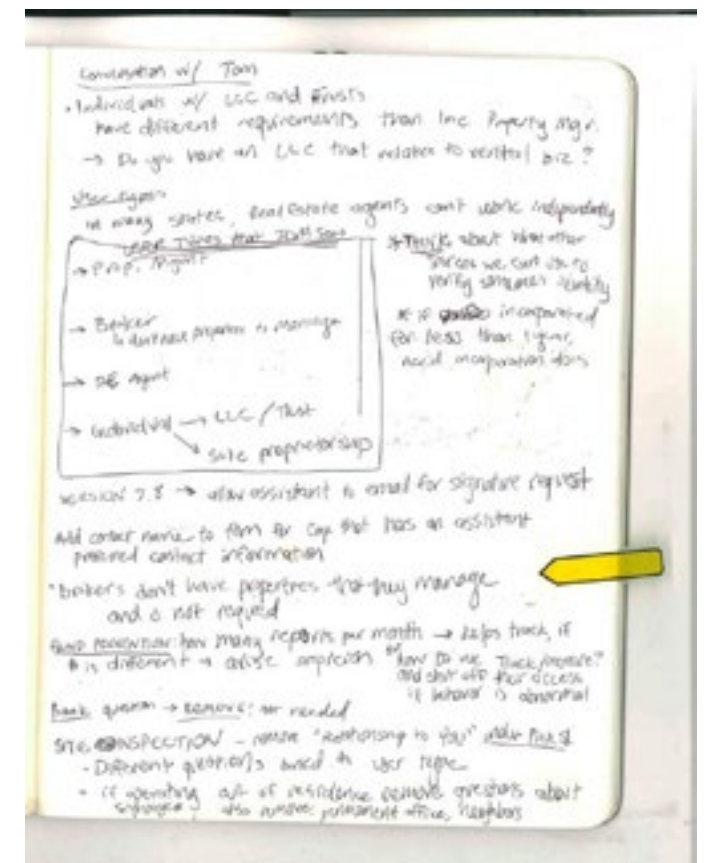 Conversation w/ Tom
• Individuals w/ LLC and Trusts
have different requirements than Inc Property Mgr.
→ Do you have an LLC that relates to rental biz?
User types
in many states, Real Estate agents can't work independently
USER Types that
→ Prop. Mgmt
→ Broker
↳ don't have properties to manage
→ RE Agent
→ Individual → LLC / Trust
↘ sole proprietorship
* THINK about what other
sources we can use to
verify identity
* if incorporated
for less than 1 year,
need incorporation docs
VERSION 7.8 → allow assistant to email for signature request
Add contact name to form for that has an assistant
preferred contact information
*brokers don't have properties that they manage
and is not required
FRAUD PREVENTION: how many reports per month → helps track, if
# is different → arise suspicion
how to we Track/measure?
and shut off their access
if behavior is abnormal
Bank question → REMOVE! not needed
SITE INSPECTION – remove "Relationship to You"
- Different questions based on user type
- if operating out of residence remove questions about
signage, also remove permanent office, neighbors